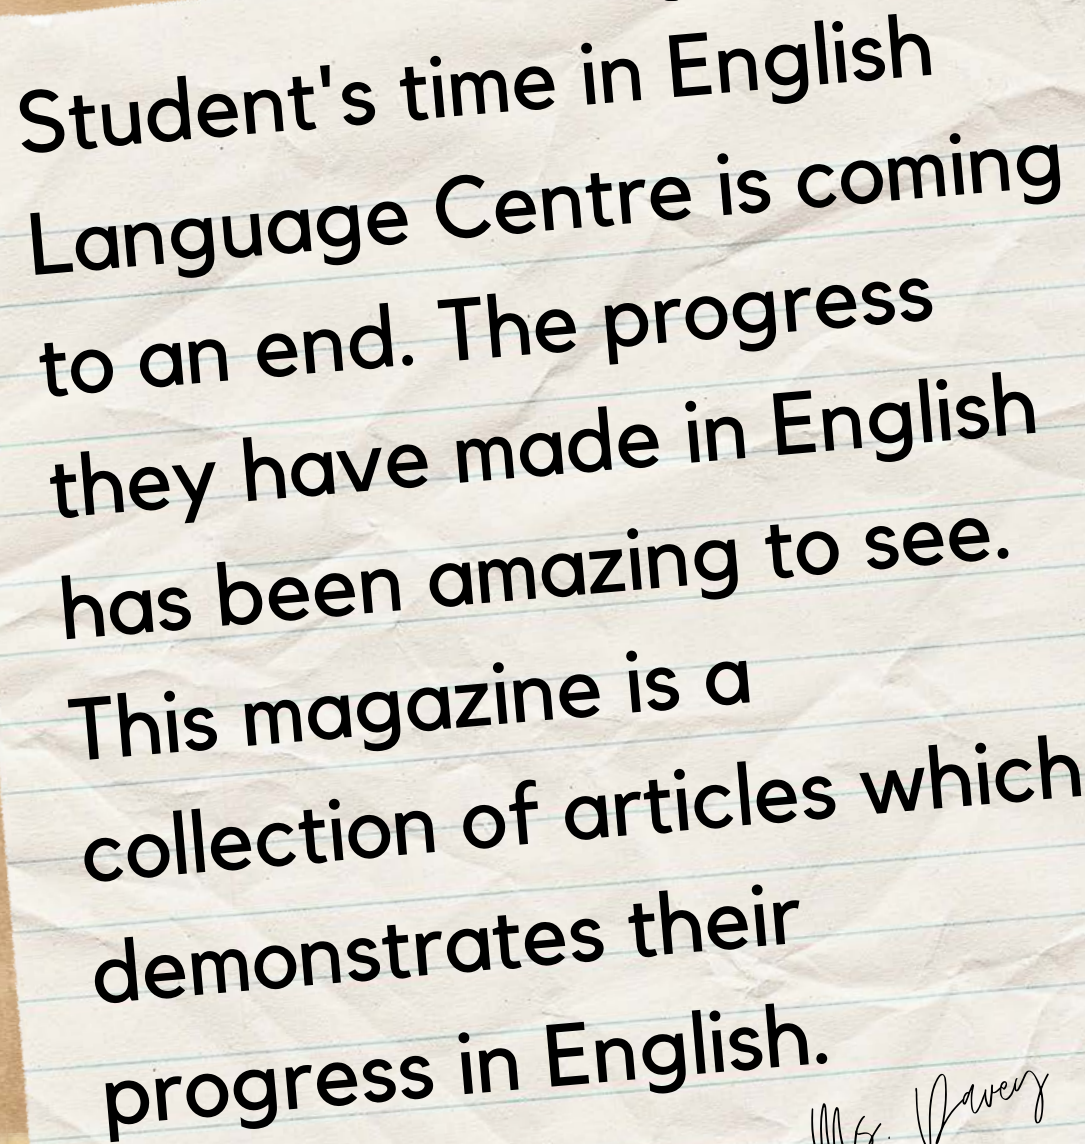 Student's time in English
Language Centre is coming
to an end. The progress
they have made in English
has been amazing to see.
This magazine is a
collection of articles which
demonstrates their
progress in English.
Ms. Davey